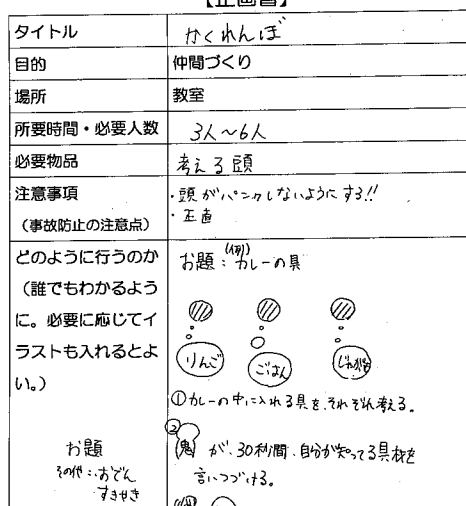 【企画書】
タイトル かくれんぼ
目的 仲間づくり
場所 教室
所要時間・必要人数 3人〜6人
必要物品 考える頭
注意事項 ・頭がパンクしないようにする!!
（事故防止の注意点） ・正直
どのように行うのか
（誰でもわかるよう
に。必要に応じてイ
ラストも入れるとよ
い。）
お題
その他：おでん
すきやき
(例)
お題：カレーの具
りんご ごはん じゃが芋
①カレーの中に入れる具をそれぞれ考える。
②
鬼 が、30秒間、自分が知ってる具材を
言いつづける。